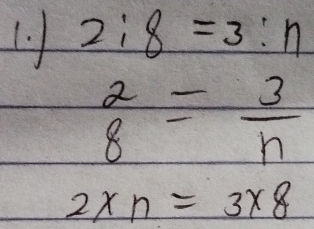 1.) 2:8 = 3:n
2/8 = 3/n
2×n = 3×8